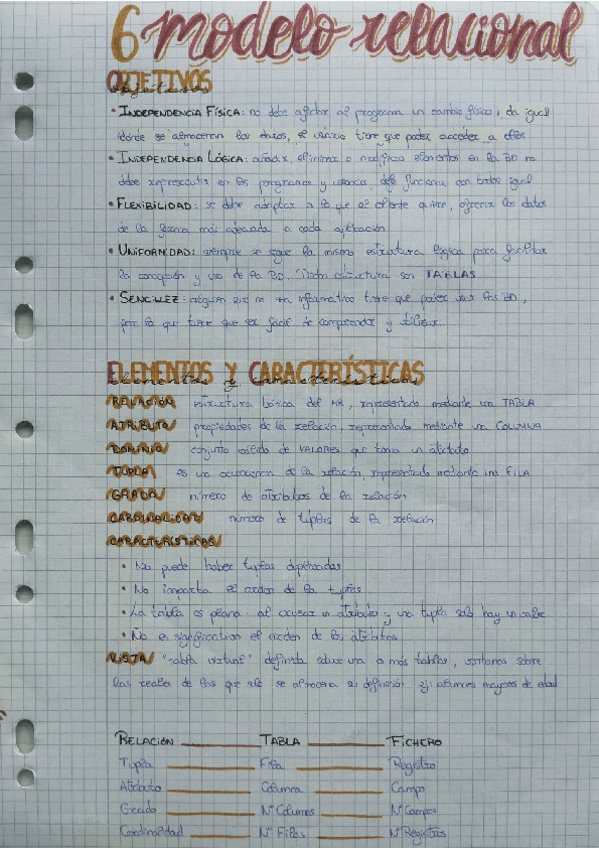 6 modelo relacional
OBJETIVOS
objetivos
• INDEPENDENCIA FÍSICA: no debe afectar al programa un cambio físico, da igual
dónde se almacenan los datos, el usuario tiene que poder acceder a ellos
• INDEPENDENCIA LÓGICA: añadir, eliminar o modificar elementos en la BD no
debe repercutir en los programas y usuarios, debe funcionar con todos igual
• FLEXIBILIDAD: se debe adaptar a lo que el cliente quiere, ofrecer los datos
de la forma más adecuada a cada aplicación
• UNIFORMIDAD: siempre se sigue la misma estructura lógica para facilitar
la concepción y uso de la BD. estructura son TABLAS
• SENCILLEZ: alguien que no sea informático tiene que poder usar las BD,
por lo que tiene que ser fácil de comprender y utilizar
ELEMENTOS Y CARACTERÍSTICAS
elementos y características
RELACIÓN estructura básica del MR, representado mediante una TABLA
ATRIBUTO propiedades de la relación, representado mediante una COLUMNA
DOMINIO conjunto válido de VALORES que toma un atributo
TUPLA es una ocurrencia de la relación, representado mediante una FILA
GRADO número de atributos de la relación
CARDINALIDAD número de tuplas de la relación
CARACTERÍSTICAS
• No puede haber tuplas duplicadas
• No importa el orden de las tuplas
• La tabla es plana: al cruzar un atributo y una tupla solo hay un valor
• No es significativo el orden de los atributos
VISTA "tabla virtual" definida sobre una o más tablas, ventanas sobre
las reales de las que sólo se almacena su definición ej: alumnos mayores de edad
RELACIÓN TABLA FICHERO
Tupla Fila Registro
Atributo Columna Campo
Grado Nº Columnas Nº Campos
Cardinalidad Nº Filas Nº Registros